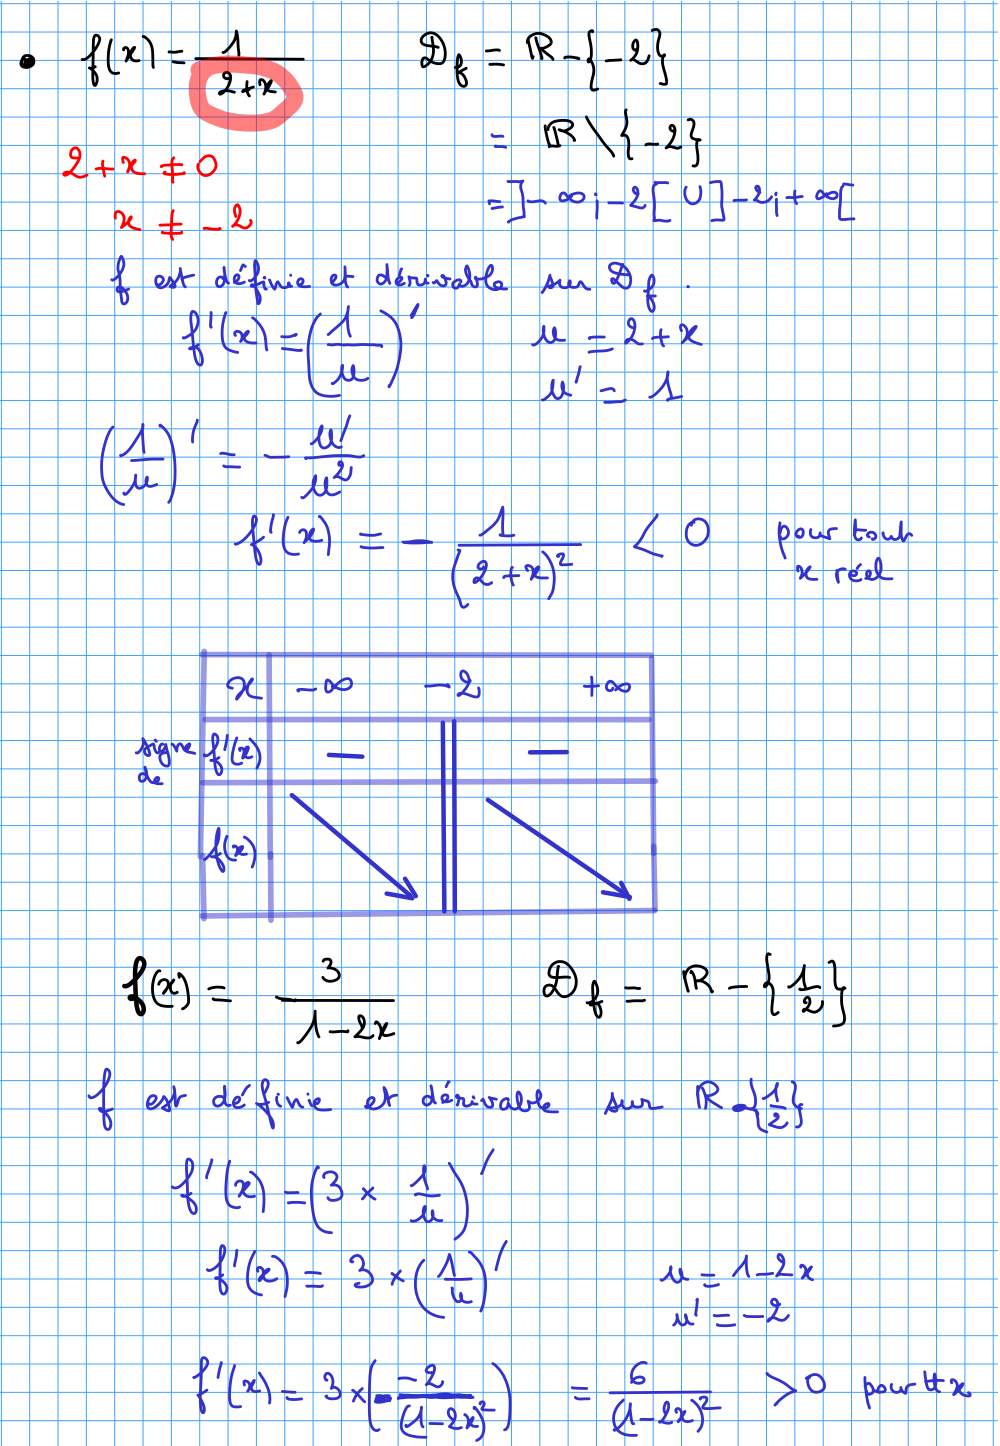 • f(x) = 1/(2+x)    D_f = ℝ - {-2}
= ℝ \ {-2}
2 + x ≠ 0
= ]-∞ ; -2[ ∪ ]-2 ; +∞[
x ≠ -2
f est définie et dérivable sur D_f .
f'(x) = (1/u)'    u = 2 + x
u' = 1
(1/u)' = - u'/u²
f'(x) = - 1/(2+x)² < 0 pour tout
x réel
x   -∞   -2   +∞
signe de f'(x)   -   ||   -
f(x)   ↘   ||   ↘
f(x) = 3/(1-2x)    D_f = ℝ - {1/2}
f est définie et dérivable sur ℝ - {1/2}
f'(x) = (3 × 1/u)'
f'(x) = 3 × (1/u)'    u = 1-2x
u' = -2
f'(x) = 3 × (- -2/(1-2x)²) = 6/(1-2x)² > 0 pour tt x